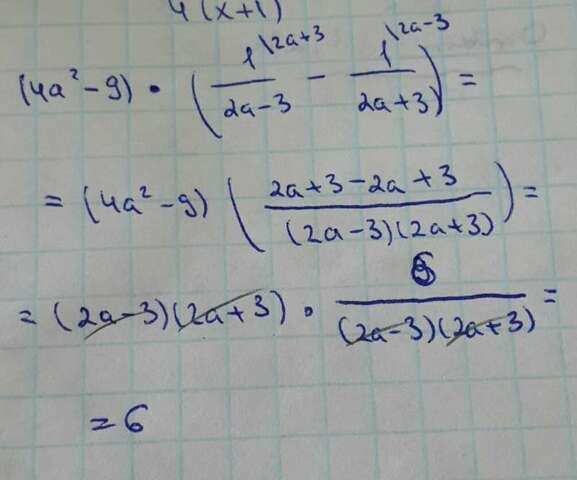 4(x+1)
(4a² - 9) · (1\2a+3 / 2a-3 - 1\2a-3 / 2a+3) =
= (4a² - 9) (2a+3-2a+3 / (2a-3)(2a+3)) =
= (2a-3)(2a+3) · 6 / (2a-3)(2a+3) =
= 6